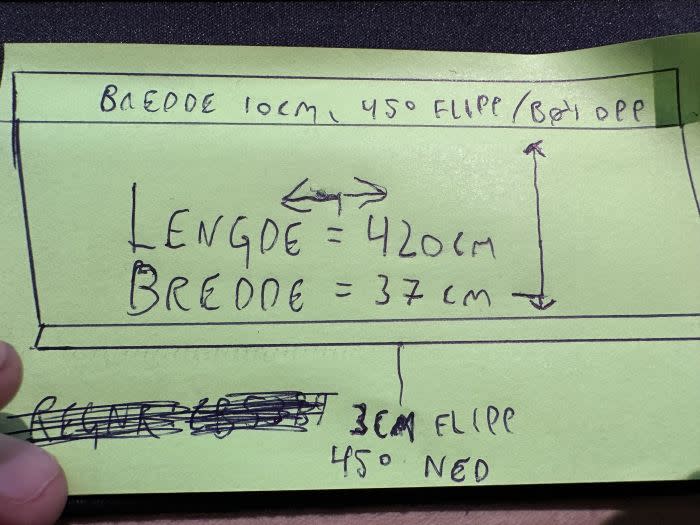 BREDDE 10CM, 45° FLIPP/BØY OPP
LENGDE = 420CM
BREDDE = 37CM
3CM FLIPP
45° NED